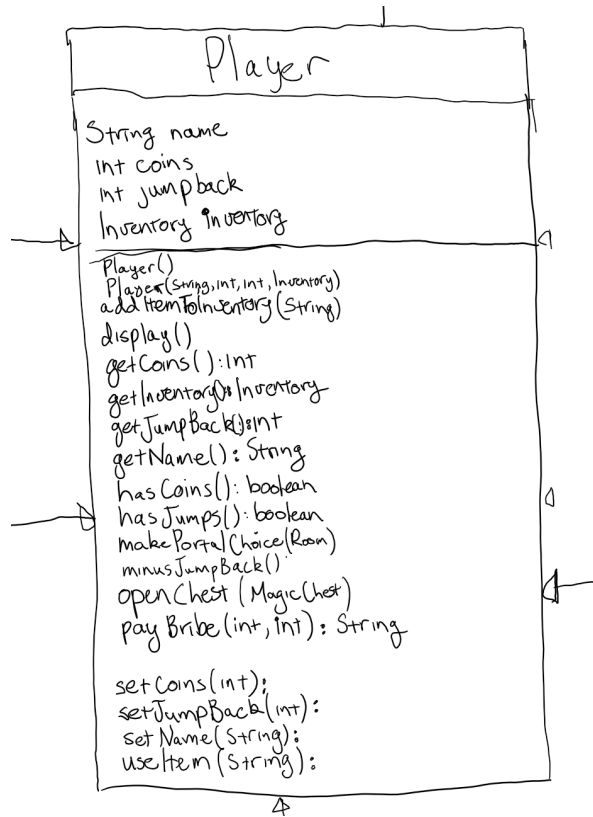 Player
String name
int coins
int jumpback
Inventory inventory
Player()
Player(String,int,int,Inventory)
addItemToInventory(String)
display()
getCoins():int
getInventory():Inventory
getJumpBack():int
getName(): String
hasCoins(): boolean
hasJumps(): boolean
makePortalChoice(Room)
minusJumpBack()
openChest (MagicChest)
payBribe(int, int): String
setCoins(int):
setJumpBack(int):
setName(String):
useItem(String):